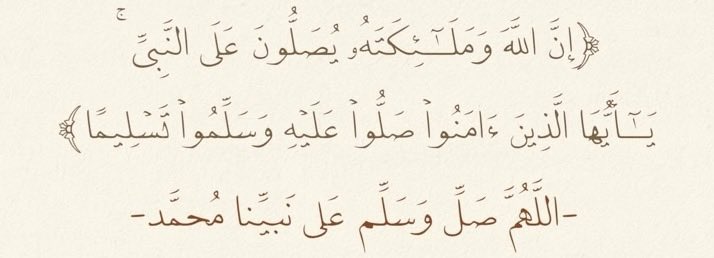 ﴿إِنَّ اللَّهَ وَمَلَـٰٓئِكَتَهُۥ يُصَلُّونَ عَلَى النَّبِيِّ ۚ
يَـٰٓأَيُّهَا الَّذِينَ ءَامَنُوا۟ صَلُّوا۟ عَلَيْهِ وَسَلِّمُوا۟ تَسْلِيمًا﴾
-اللَّهُمَّ صَلِّ وَسَلِّم عَلى نَبيِّنا مُحمَّد-